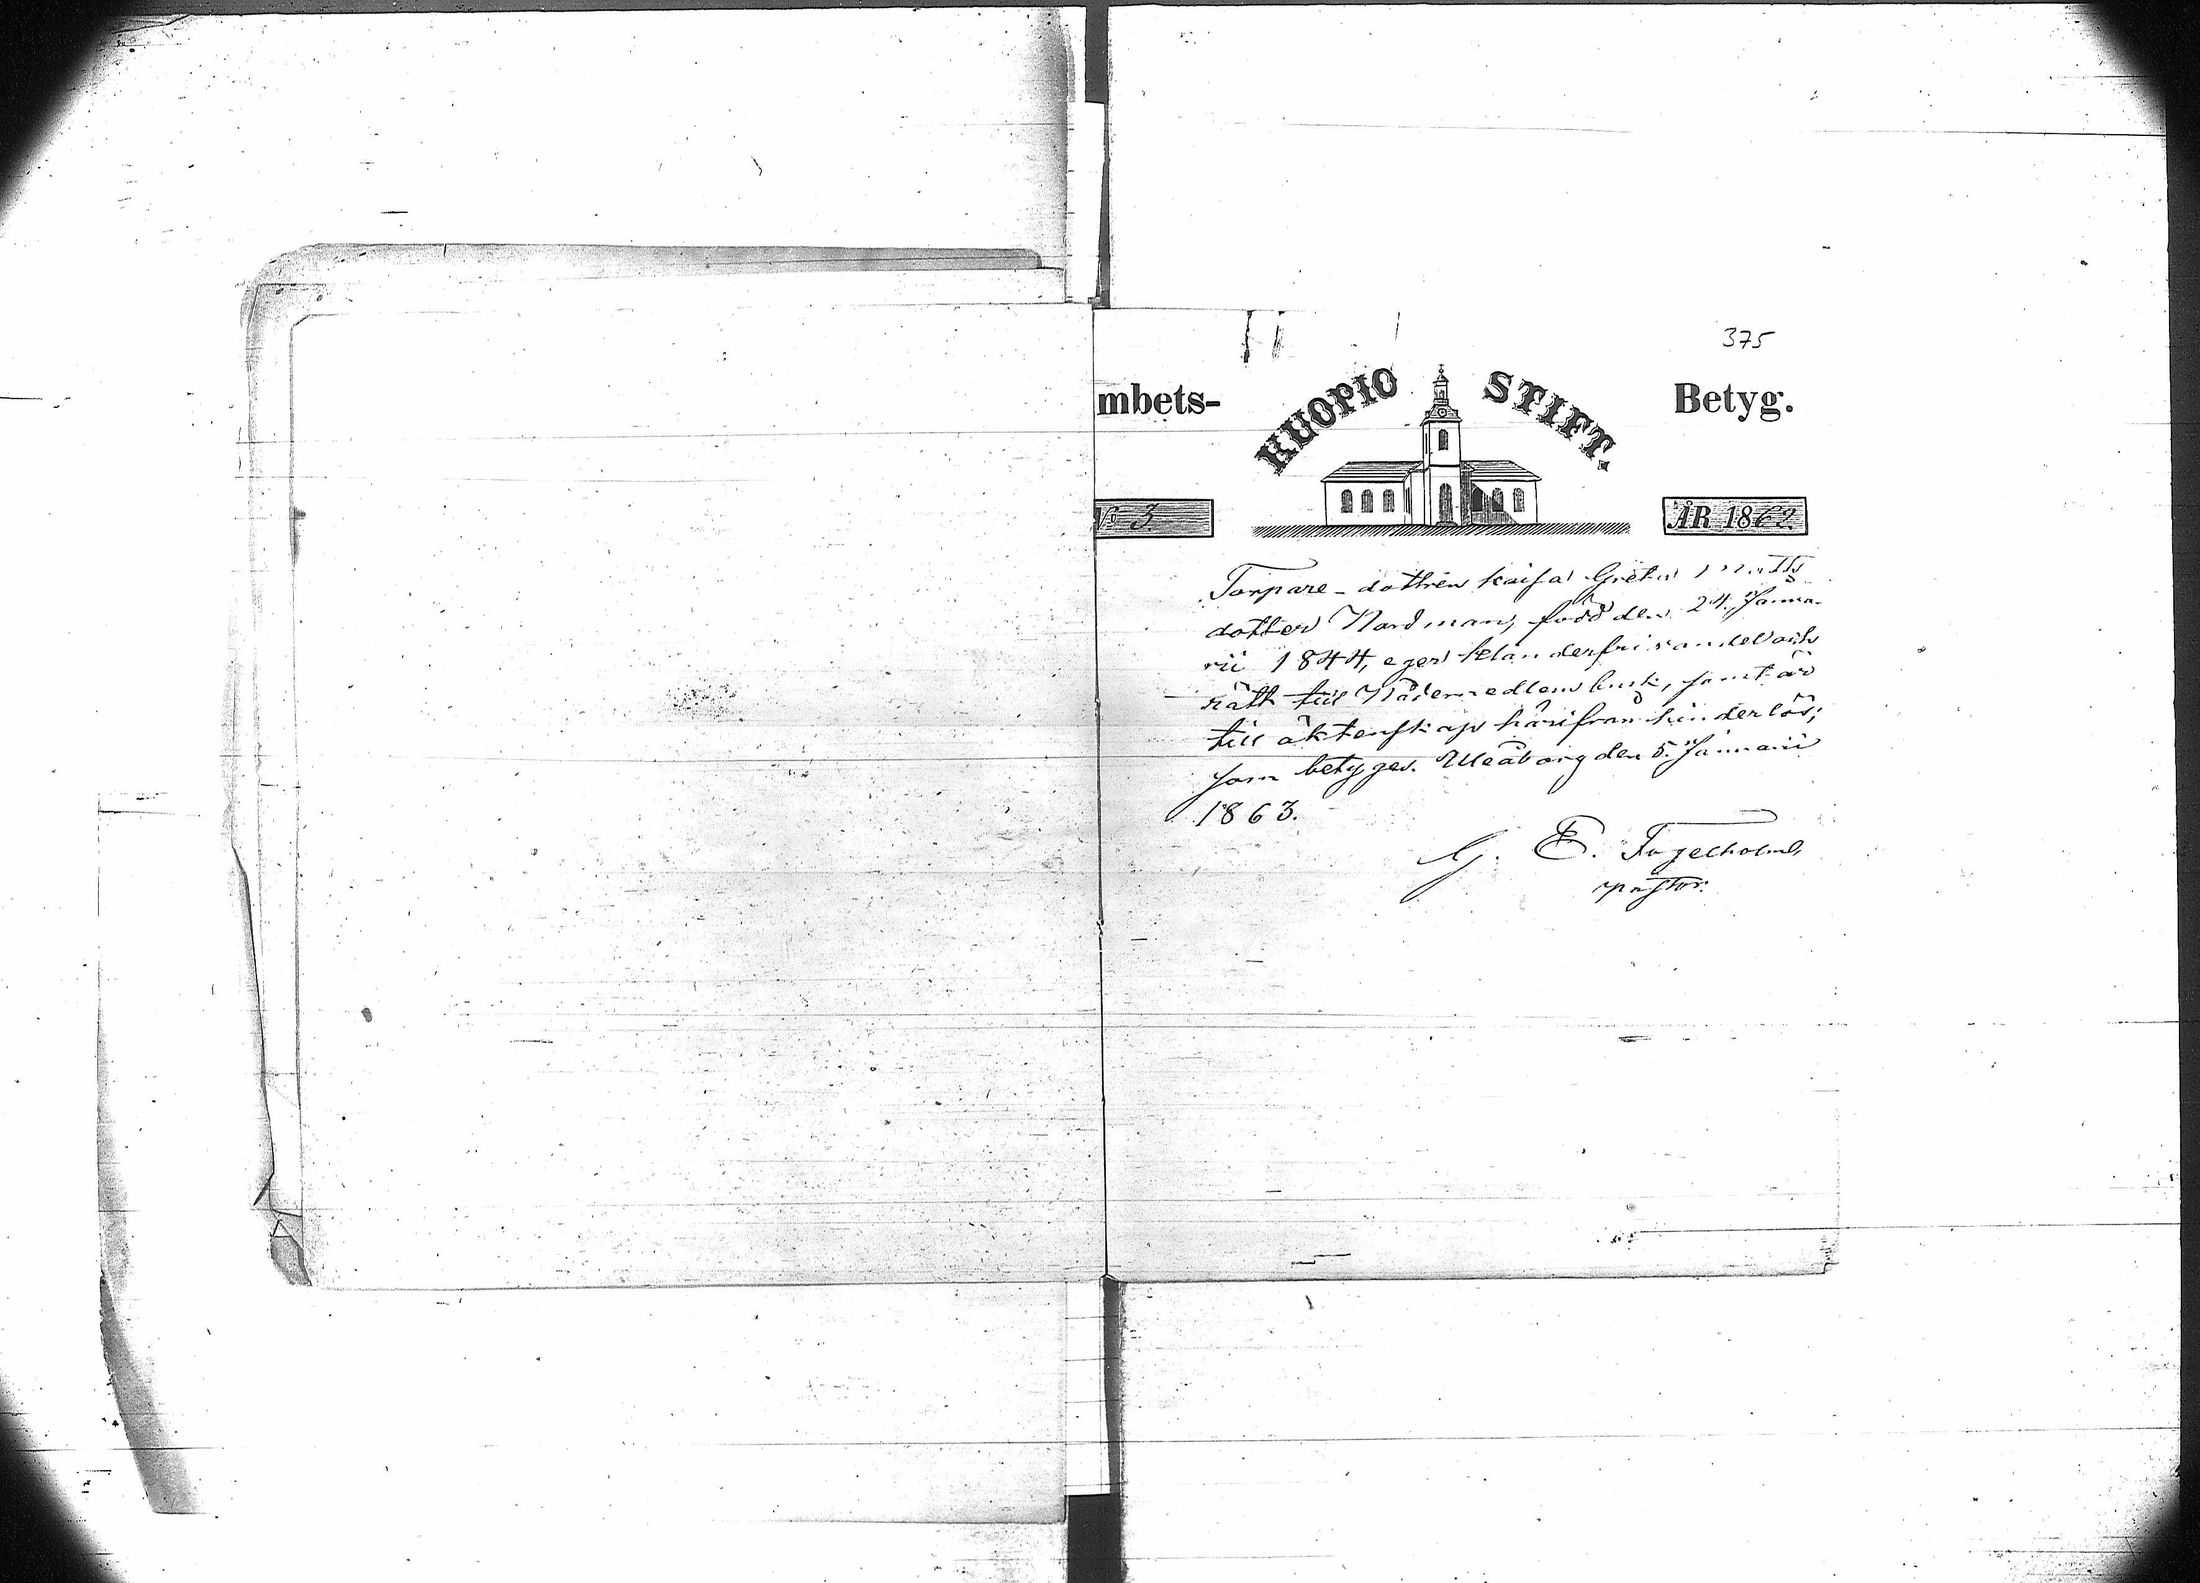 375
mbets- KUOPIO STIFT. Betyg.
No 3. ÅR 1862.
Torpare-dottren Kaisa Greta Matts
dotter Nordman, född den 24 Janua-
rii 1844, eger klanderfri vandel och
rätt till Nådemedlens bruk, samt är
till äktenskap härifrån hinderlös;
som betygas. Uleåborg den 5 Januarii
1863.
G. E. Fogelholm,
pastor.